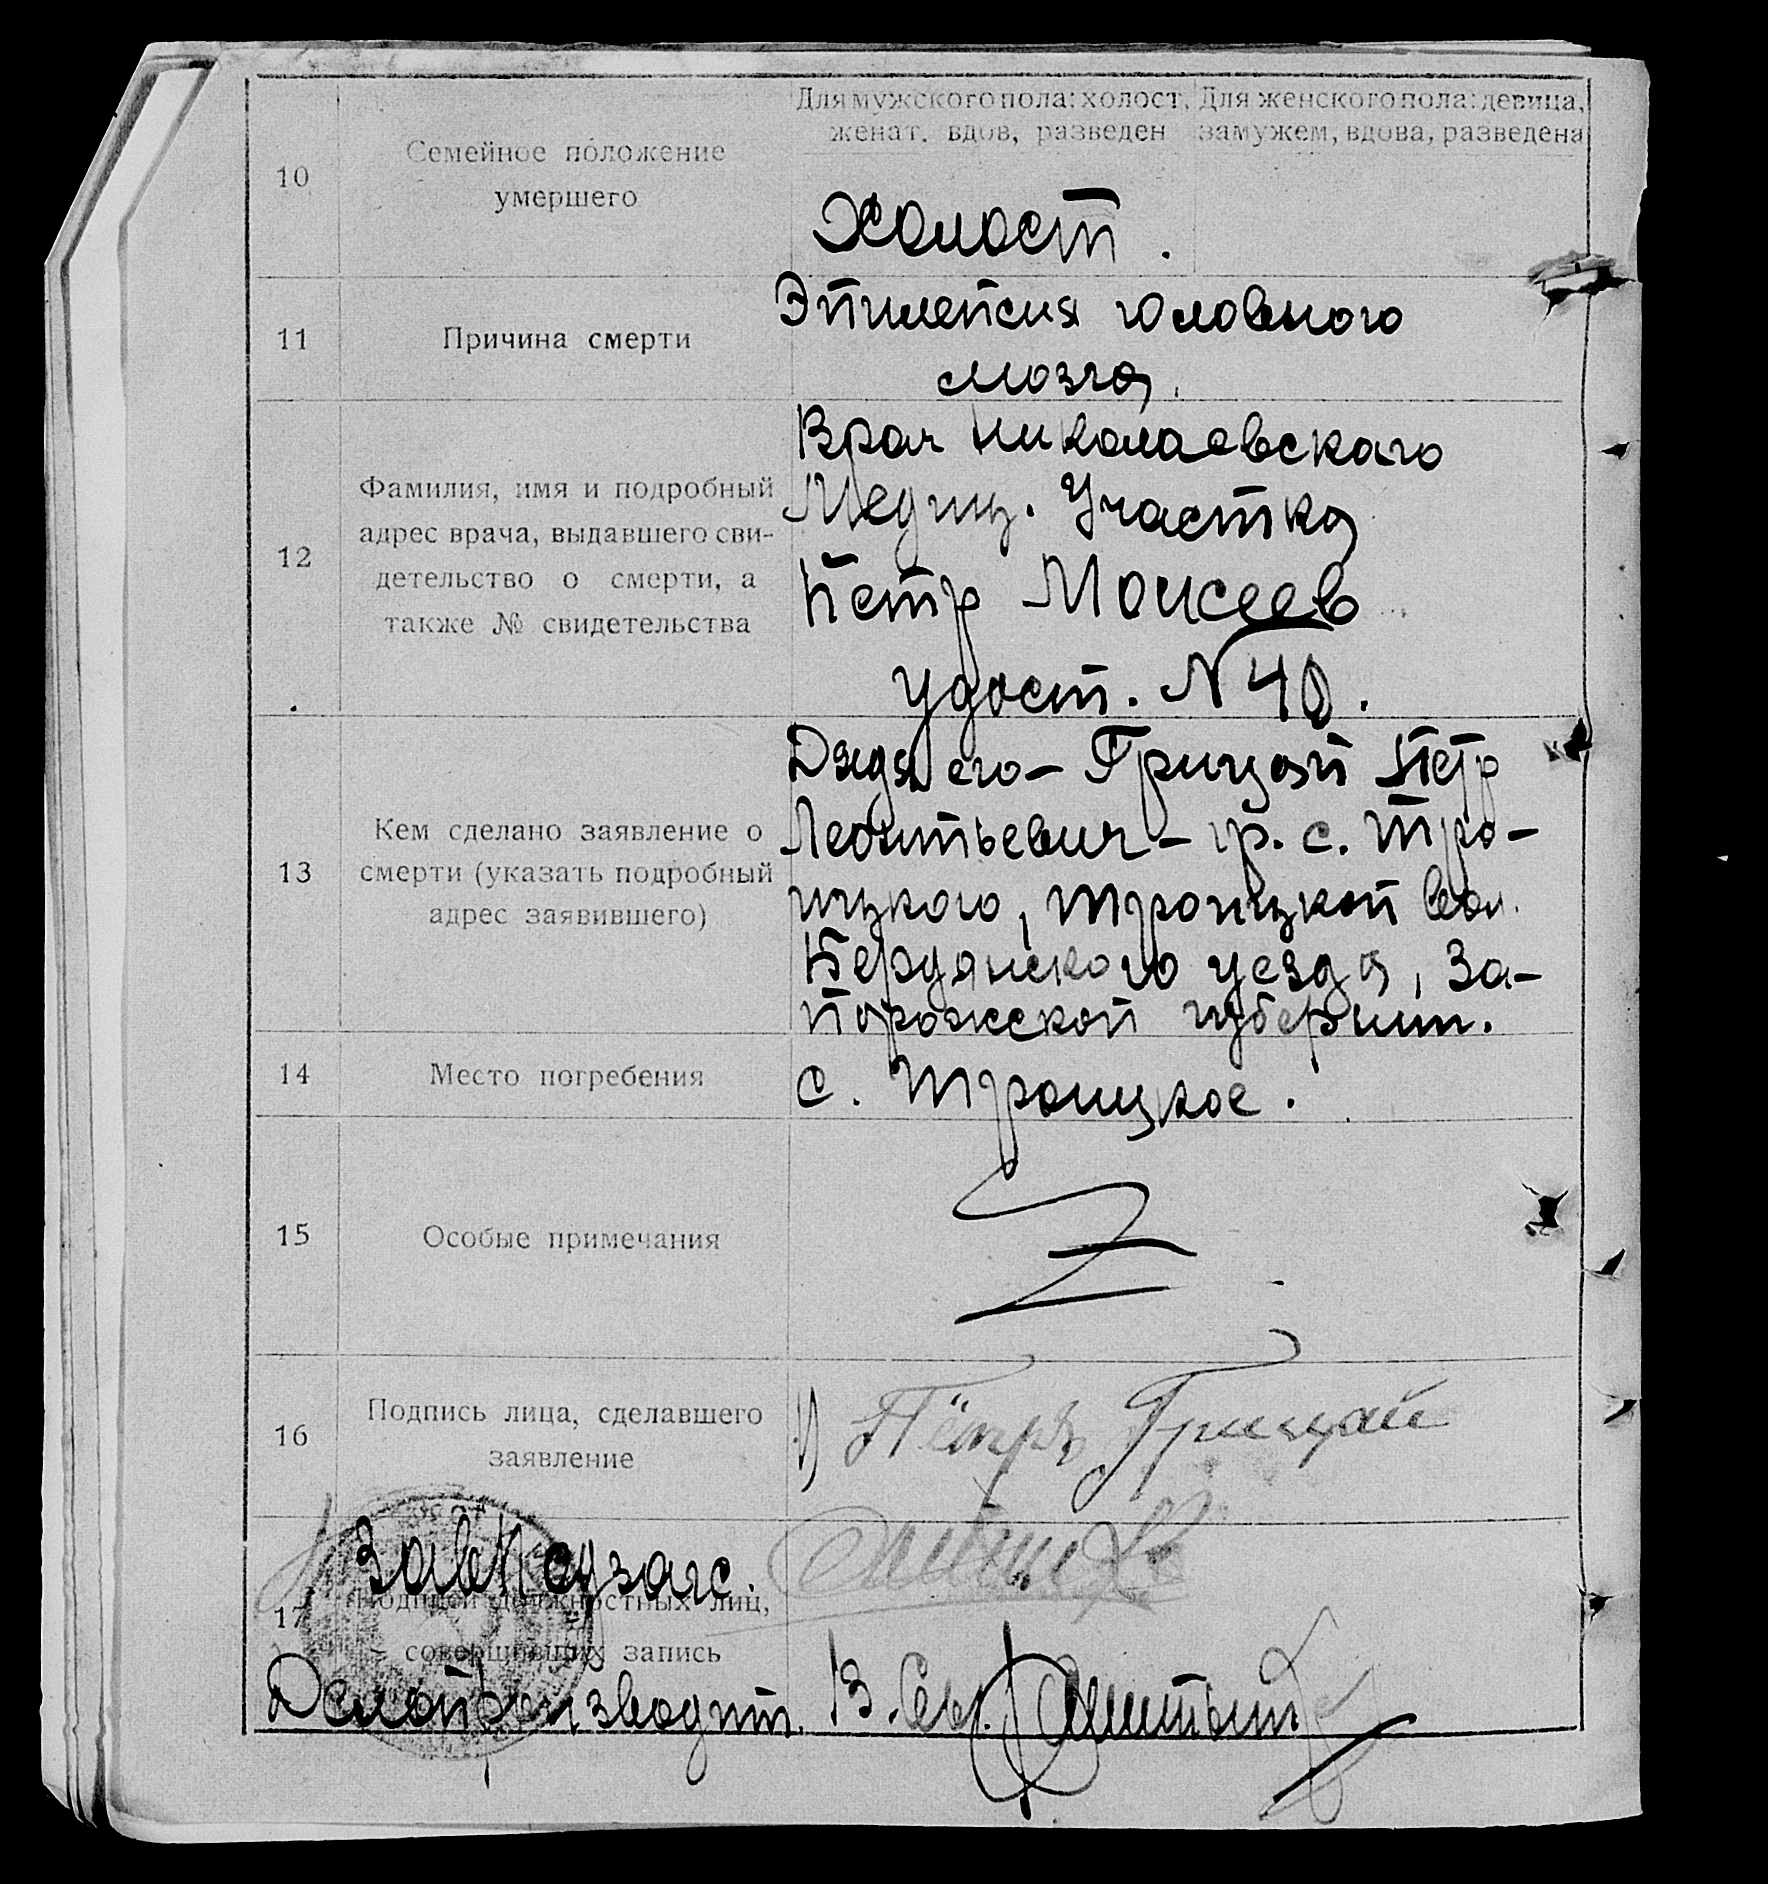 Для мужского пола: холост, женат, вдов, разведен
Для женского пола: девица, замужем, вдова, разведена
10
Семейное положение
умершего
Холост.
11
Причина смерти
Эпилепсия головного
мозга.
12
Фамилия, имя и подробный
адрес врача, выдавшего сви-
детельство о смерти, а
также № свидетельства
Врач Николаевского
Медиц. Участка
Петр Моисеев
Удост. N 40.
13
Кем сделано заявление о
смерти (указать подробный
адрес заявившего)
Дядя его – Грицай Петр
Леонтьевич – гр. с. Тро-
ицкого, Троицкой вол.
Бердянского уезда, За-
порожской губернии.
14
Место погребения
с. Троицкое.
15
Особые примечания
16
Подпись лица, сделавшего
заявление
1) Пётръ Грицай
17
ЗавПодзагс.
Подписи должностных лиц,
совершивших запись
Делопроизводит.